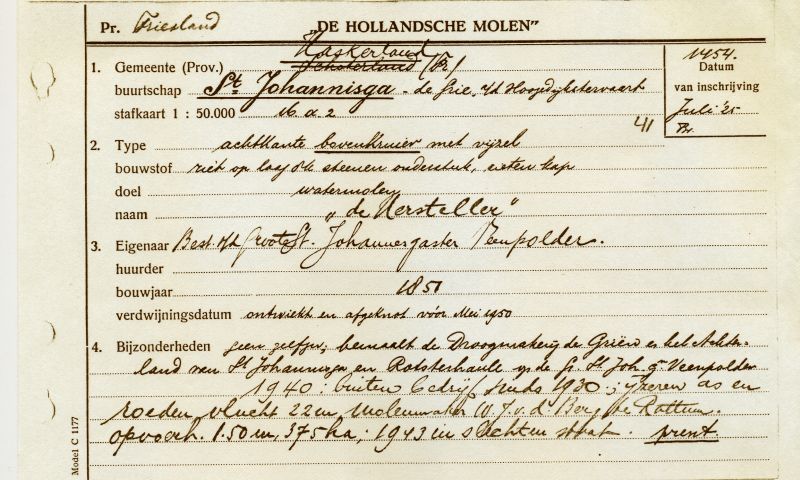 Pr. Friesland „DE HOLLANDSCHE MOLEN"
Haskerland
1. Gemeente (Prov.) Schoterland (Fr.)
buurtschap St Johannisga - de Grie. a/d Hoogedijkstervaart
stafkaart 1 : 50.000 16 a 2
41
1454.
Datum
van inschrijving
Juli '25
Br.
2. Type achtkante bovenkruier met vijzel
bouwstof riet op laag 8k steenen onderstuk, eeten kap
doel watermolen
naam „de Hersteller"
3. Eigenaar Best. v/d Groote St. Johannesgaster Veenpolder.
huurder
bouwjaar 1851
verdwijningsdatum ontwiekt en afgeknot vóór Mei 1950
4. Bijzonderheden geen zelfzw; bemaalt de Droogmakerij de Griën en het Achter-
land van St Johannisga en Rotsterhaule v/d Gr. St Joh. g. Veenpolder
1940: buiten bedrijf sinds 1930; ijzeren as en
roeden, vlucht 22 m, molenmaker W. J. v. d. Berg te Rottum.
opvoerh. 1.50 m, 375 ha; 1943 in slechten staat. prent.
Model C 1177